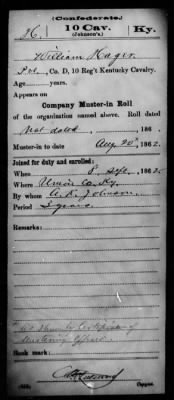 (Confederate.)
H. 10 Cav. Ky.
(Johnson's.)
William Hager
Pvt., Co. D, 10 Reg't Kentucky Cavalry.
Age years.
Appears on
Company Muster-in Roll
of the organization named above. Roll dated
Not dated, 186 .
Muster-in to date Aug 20, 1862.
Joined for duty and enrolled:
When 8 Sept., 1862.
Where Union Co. Ky.
By whom A. R. Johnson
Period 3 years.
Remarks:
Certificate of
Mustering Officer
Book mark:
Copyist.